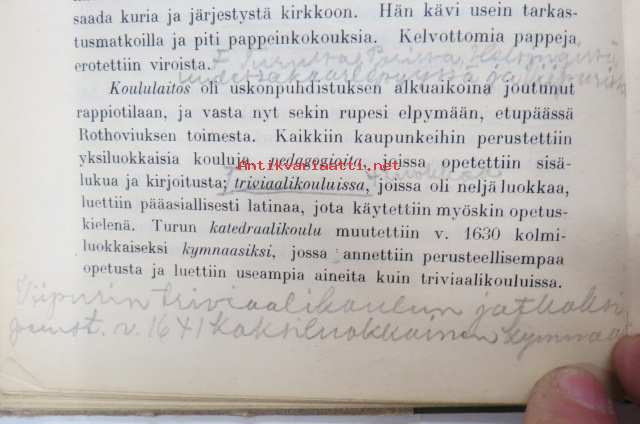 saada kuria ja järjestystä kirkkoon. Hän kävi usein tarkas-
tusmatkoilla ja piti pappeinkokouksia. Kelvottomia pappeja
erotettiin viroista.
Koululaitos oli uskonpuhdistuksen alkuaikoina joutunut
rappiotilaan, ja vasta nyt sekin rupesi elpymään, etupäässä
Rothoviuksen toimesta. Kaikkiin kaupunkeihin perustettiin
yksiluokkaisia kouluja, pedagogioita, joissa opetettiin sisä-
Antikvariaatti.net
lukua ja kirjoitusta; triviaalikouluissa, joissa oli neljä luokkaa,
luettiin pääasiallisesti latinaa, jota käytettiin myöskin opetus-
kielenä. Turun katedraalikoulu muutettiin v. 1630 kolmi-
luokkaiseksi kymnaasiksi, jossa annettiin perusteellisempaa
opetusta ja luettiin useampia aineita kuin triviaalikouluissa.
Viipurin triviaalikoulun jatkoksi
perust. v. 1641 kaksiluokkainen kymnaa